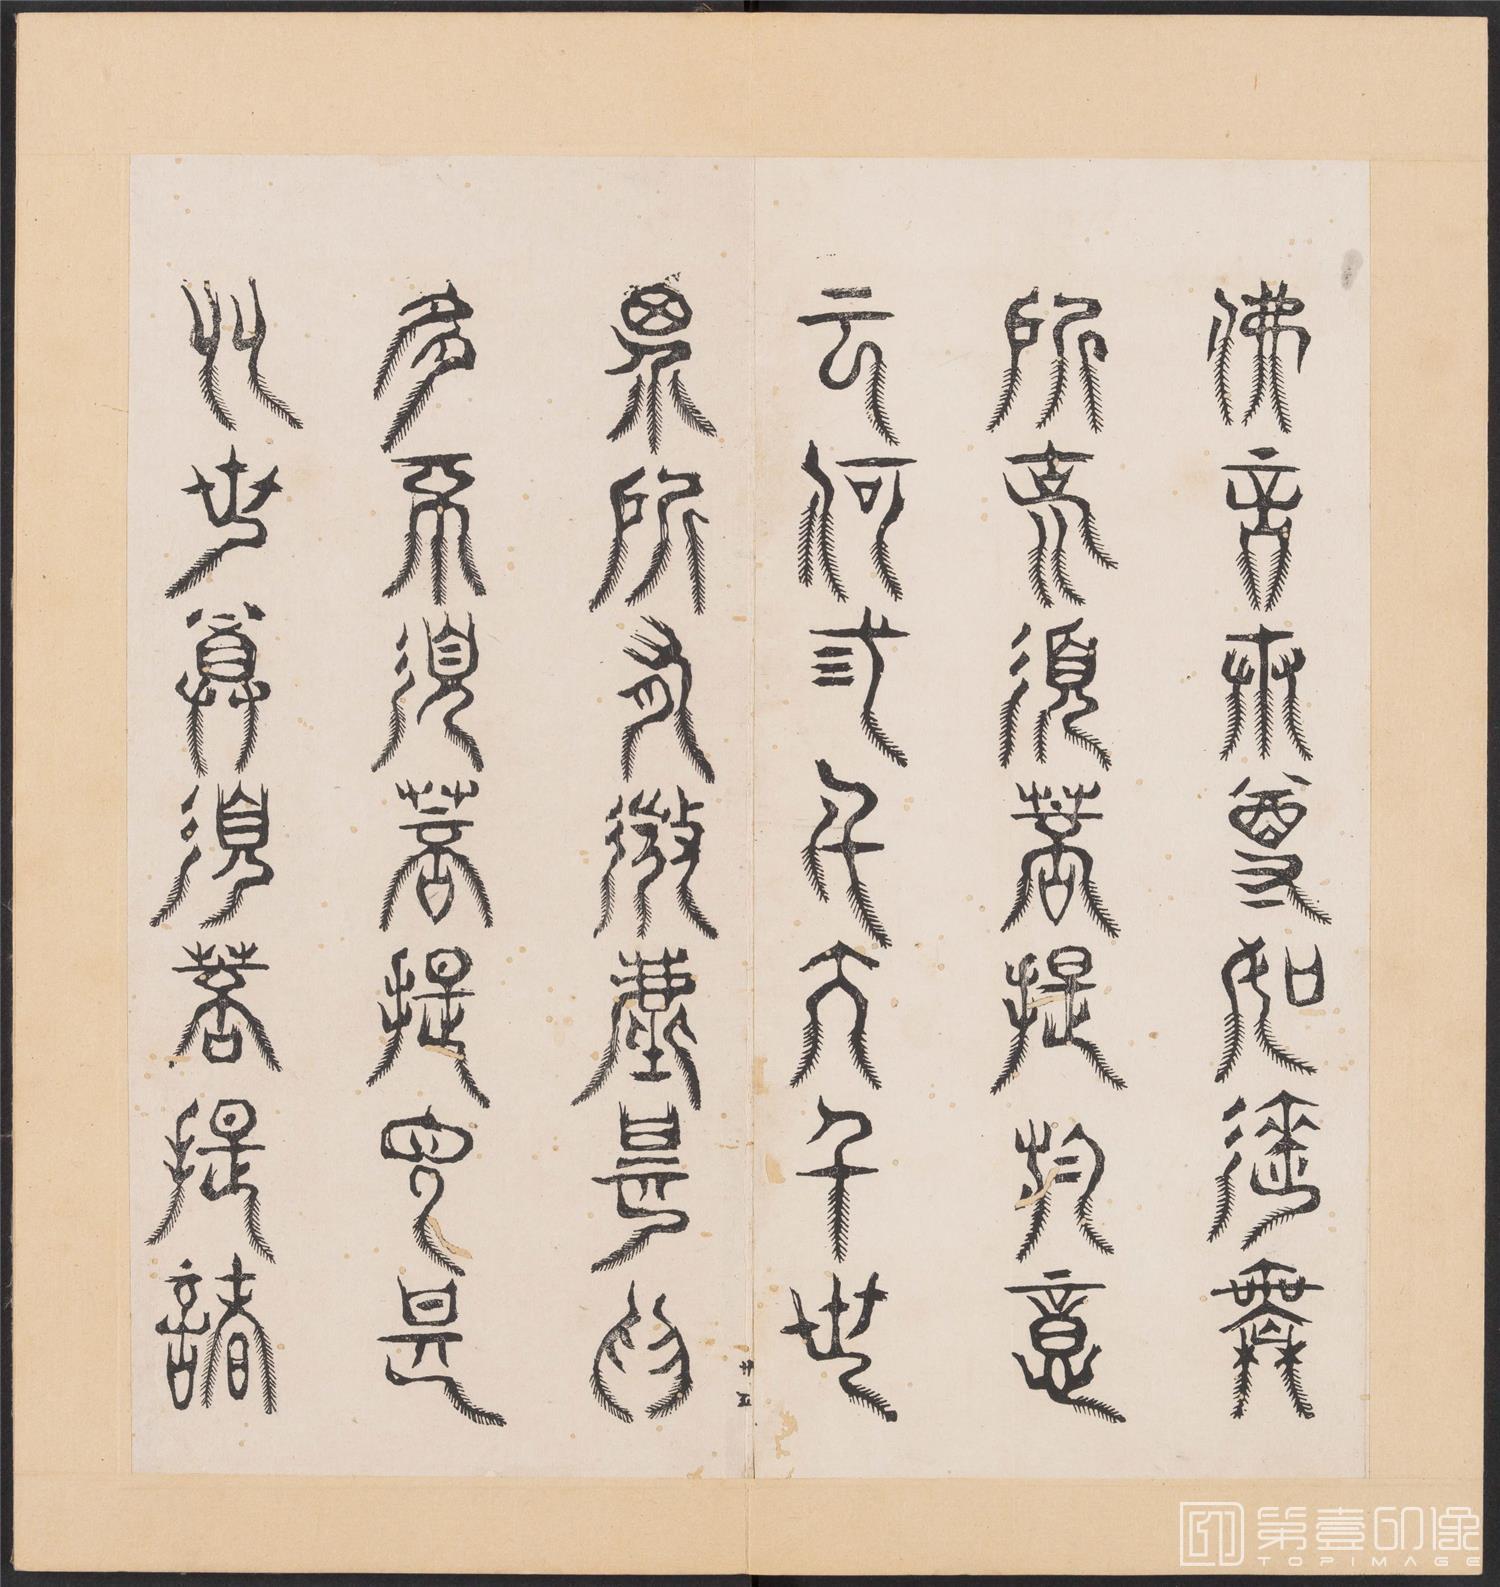 佛言世尊如來無
所說須菩提於意
云何三千大千世
界所有微塵是為
廿五
多不須菩提言甚
多世尊須菩提諸
第壹印像
TOPIMAGE